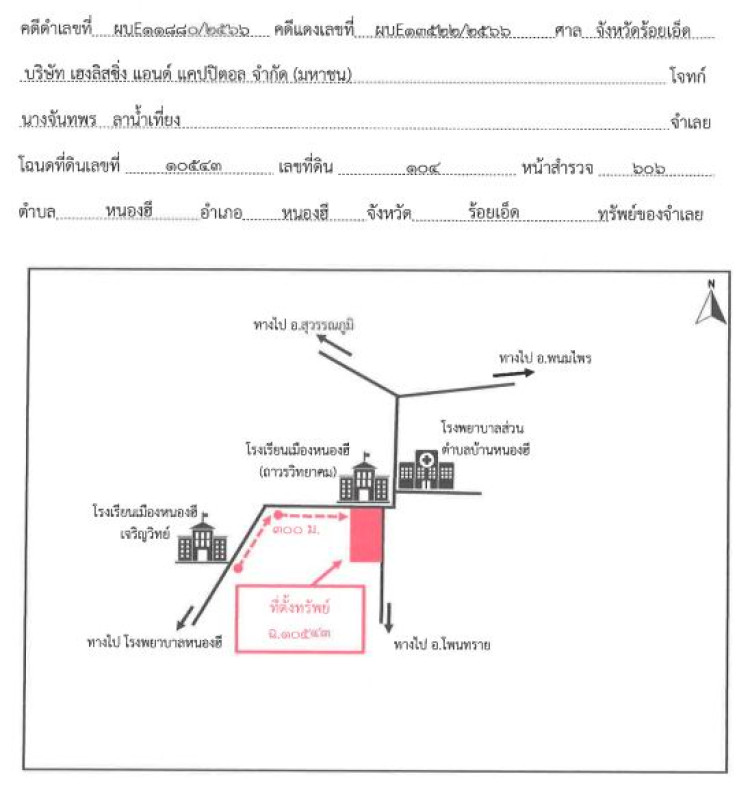 คดีดำเลขที่ ผบE๑๑๘๘๐/๒๕๖๖ คดีแดงเลขที่ ผบE๑๓๕๒๒/๒๕๖๖ ศาล จังหวัดร้อยเอ็ด
บริษัท เฮงลิสซิ่ง แอนด์ แคปปิตอล จำกัด (มหาชน) โจทก์
นางจันทพร ลาน้ำเที่ยง จำเลย
โฉนดที่ดินเลขที่ ๑๐๕๔๓ เลขที่ดิน ๑๐๔ หน้าสำรวจ ๖๐๖
ตำบล หนองฮี อำเภอ หนองฮี จังหวัด ร้อยเอ็ด ทรัพย์ของจำเลย
N
ทางไป อ.สุวรรณภูมิ
ทางไป อ.พนมไพร
โรงพยาบาลส่วน
ตำบลบ้านหนองฮี
โรงเรียนเมืองหนองฮี
(ถาวรวิทยาคม)
โรงเรียนเมืองหนองฮี
เจริญวิทย์
๓๐๐ ม.
ที่ตั้งทรัพย์
ฉ.๑๐๕๔๓
ทางไป โรงพยาบาลหนองฮี
ทางไป อ.โพนทราย